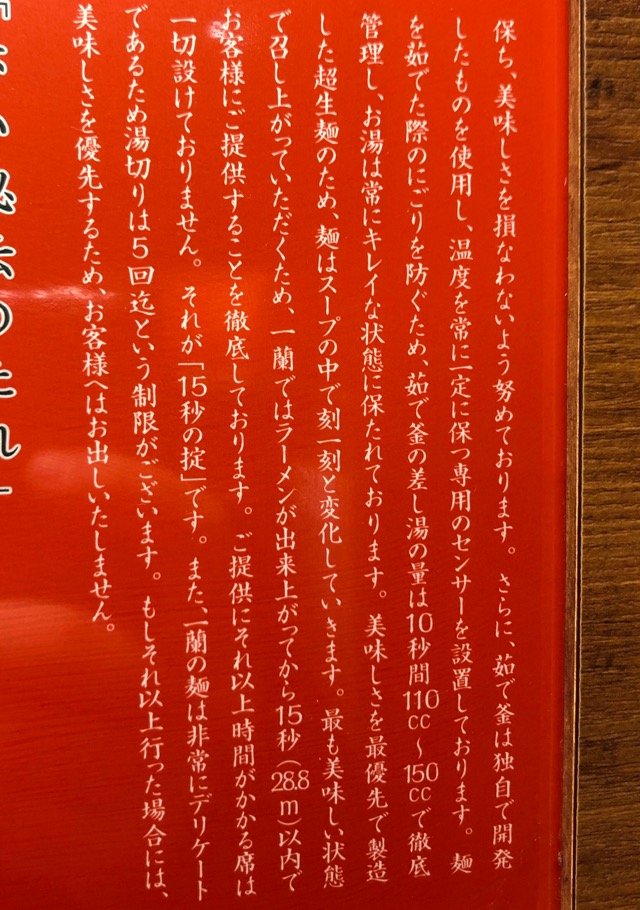 保ち、美味しさを損なわないよう努めております。さらに、茹で釜は独自で開発
したものを使用し、温度を常に一定に保つ専用のセンサーを設置しております。麺
を茹でた際のにごりを防ぐため、茹で釜の差し湯の量は10秒間110cc～150ccで徹底
管理し、お湯は常にキレイな状態に保たれております。美味しさを最優先で製造
した超生麺のため、麺はスープの中で刻一刻と変化していきます。最も美味しい状態
で召し上がっていただくため、一蘭ではラーメンが出来上がってから15秒(28.8m)以内で
お客様にご提供することを徹底しております。ご提供にそれ以上時間がかかる席は
一切設けておりません。それが「15秒の掟」です。また、一蘭の麺は非常にデリケート
であるため湯切りは5回迄という制限がございます。もしそれ以上行った場合には、
美味しさを優先するため、お客様へはお出しいたしません。